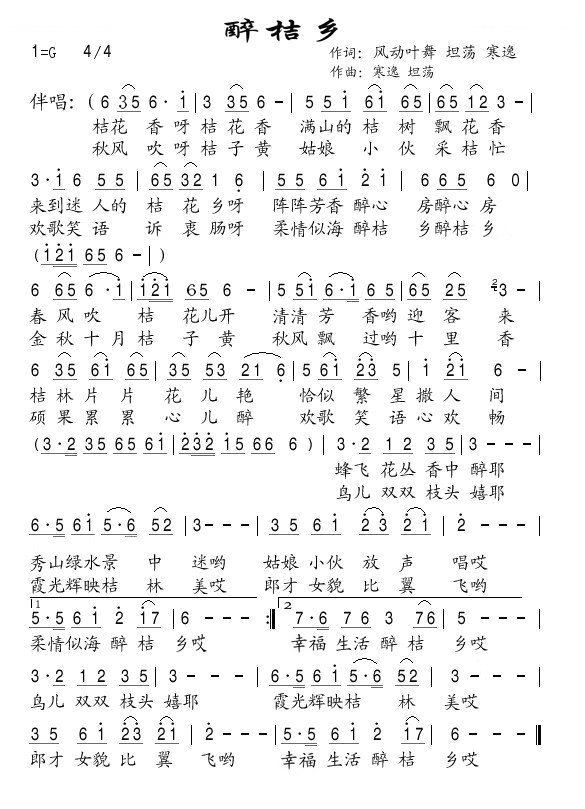 醉桔乡
1=G 4/4 作词：风动叶舞 坦荡 寒逸
作曲：寒逸 坦荡
伴唱：（6 35 6·i|3 356-|55i 6i65|65123-|
桔花 香呀桔花香 满山的桔树飘花香
秋风 吹呀桔子黄 姑娘小伙采桔忙
3·i6 55|6532 1 6|55i6i 2i|665 60|
来到迷人的桔花乡呀 阵阵芳香醉心 房醉心房
欢歌笑语 诉衷肠呀 柔情似海醉桔 乡醉桔乡
（i2i 65 6-|）
6 65 6·i|i2i 65 6-|5 5i 6·i 65|65 25 3-|
春风吹 桔 花儿开 清清芳 香哟迎客来
金秋十月桔 子黄 秋风飘 过哟十里香
6 35 35 6i|35 53 21 6|5 6i 23 5|1 2i 6-|
桔林片片花儿艳 恰似繁星撒人间
硕果累累心儿醉 欢歌笑语心欢畅
（3·2 35 65 6i|2321566 6）|3·2 12 35|3---|
蜂飞 花丛 香中 醉耶
鸟儿 双双 枝头 嬉耶
6·5 6i 5·6 52|3---|35 6i 23 2i|2---|
秀山绿水景 中 迷哟 姑娘小伙 放声 唱哎
霞光辉映桔 林 美哎 郎才女貌 比翼 飞哟
1 2
5·5 6i 2 i7|6---:‖7·6 76 3 76|5---|
柔情似海 醉桔 乡哎 幸福生活 醉桔 乡哎
3·2 12 35|3---|6·5 6i 5·6 52|3---|
鸟儿 双双 枝头 嬉耶 霞光辉映桔 林 美哎
35 6i 23 2i|2---|5·5 6i 2 i7|6---‖
郎才女貌 比翼 飞哟 幸福生活 醉桔 乡哎